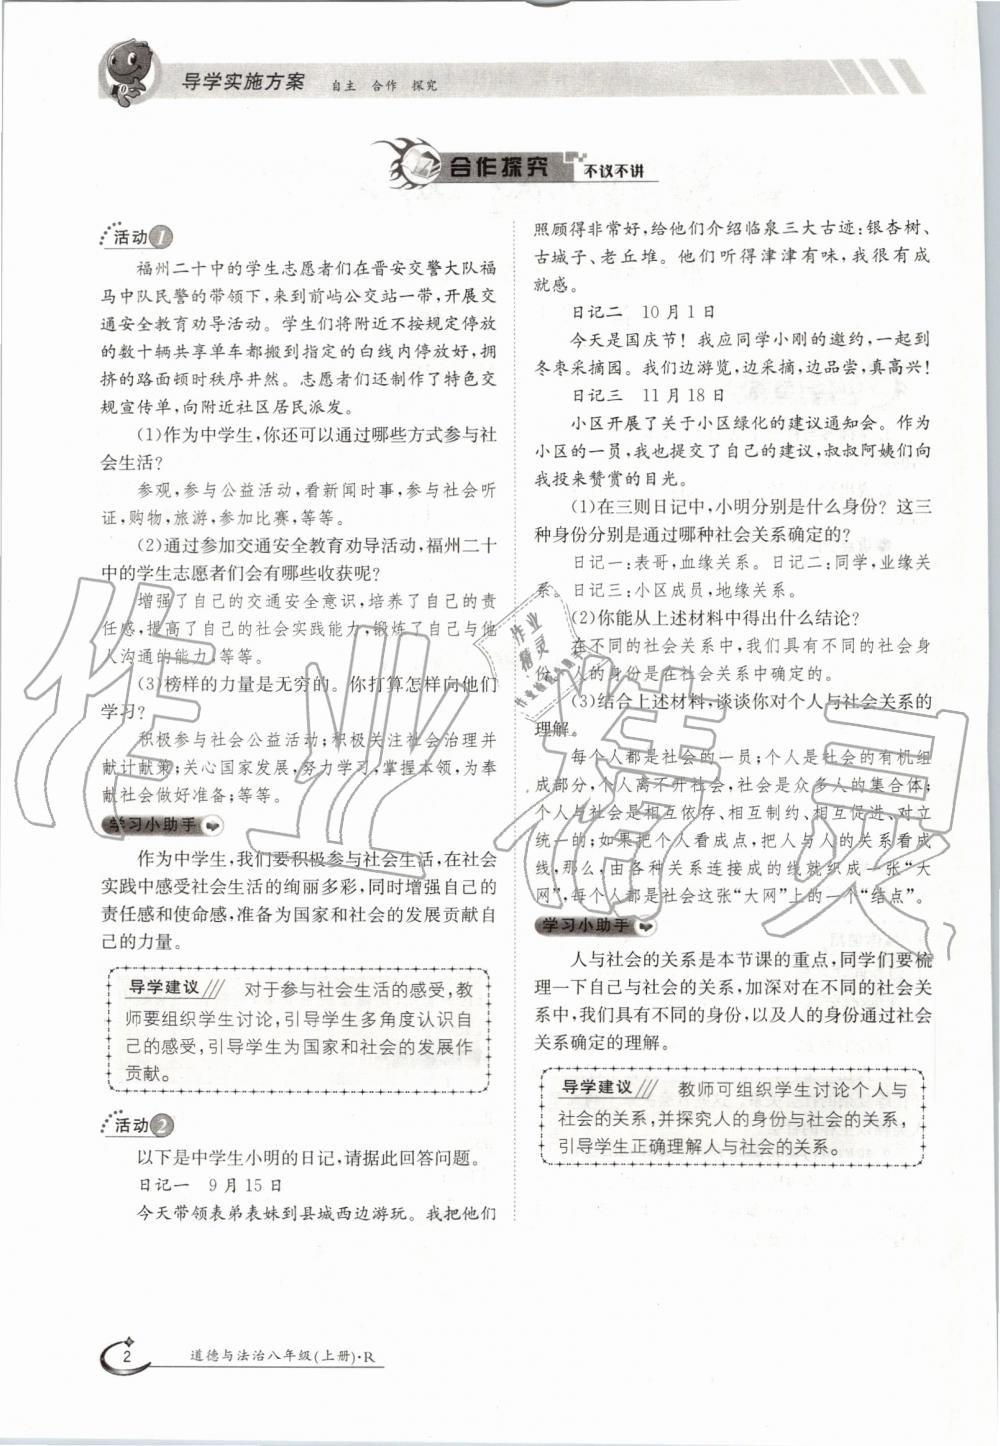 导学实施方案 自主 合作 探究
合作探究 不议不讲
活动1
福州二十中的学生志愿者们在晋安交警大队福
马中队民警的带领下,来到前屿公交站一带,开展交
通安全教育劝导活动。学生们将附近不按规定停放
的数十辆共享单车都搬到指定的白线内停放好,拥
挤的路面顿时秩序井然。志愿者们还制作了特色交
规宣传单,向附近社区居民派发。
(1)作为中学生,你还可以通过哪些方式参与社
会生活?
参观,参与公益活动,看新闻时事,参与社会听
证,购物,旅游,参加比赛,等等。
(2)通过参加交通安全教育劝导活动,福州二十
中的学生志愿者们会有哪些收获呢?
增强了自己的交通安全意识,培养了自己的责
任感,提高了自己的社会实践能力,锻炼了自己与他
人沟通的能力,等等。
(3)榜样的力量是无穷的。你打算怎样向他们
学习?
积极参与社会公益活动;积极关注社会治理并
献计献策;关心国家发展,努力学习,掌握本领,为奉
献社会做好准备;等等。
学习小助手
作为中学生,我们要积极参与社会生活,在社会
实践中感受社会生活的绚丽多彩,同时增强自己的
责任感和使命感,准备为国家和社会的发展贡献自
己的力量。
导学建议 对于参与社会生活的感受,教
师要组织学生讨论,引导学生多角度认识自
己的感受,引导学生为国家和社会的发展作
贡献。
活动2
以下是中学生小明的日记,请据此回答问题。
日记一 9月15日
今天带领表弟表妹到县城西边游玩。我把他们
照顾得非常好,给他们介绍临泉三大古迹:银杏树、
古城子、老丘堆。他们听得津津有味,我很有成
就感。
日记二 10月1日
今天是国庆节!我应同学小刚的邀约,一起到
冬枣采摘园。我们边游览,边采摘,边品尝,真高兴!
日记三 11月18日
小区开展了关于小区绿化的建议通知会。作为
小区的一员,我也提交了自己的建议,叔叔阿姨们向
我投来赞赏的目光。
(1)在三则日记中,小明分别是什么身份?这三
种身份分别是通过哪种社会关系确定的?
日记一:表哥,血缘关系。日记二:同学,业缘关
系。日记三:小区成员,地缘关系。
(2)你能从上述材料中得出什么结论?
在不同的社会关系中,我们具有不同的社会身
份。人的身份是在社会关系中确定的。
(3)结合上述材料,谈谈你对个人与社会关系的
理解。
每个人都是社会的一员;个人是社会的有机组
成部分,个人离不开社会,社会是众多人的集合体;
个人与社会是相互依存、相互制约、相互促进、对立
统一的;如果把个人看成点,把人与人的关系看成
线,那么,由各种关系连接成的线就织成一张“大
网”,每个人都是社会这张“大网”上的一个“结点”。
学习小助手
人与社会的关系是本节课的重点,同学们要梳
理一下自己与社会的关系,加深对在不同的社会关
系中,我们具有不同的身份,以及人的身份通过社会
关系确定的理解。
导学建议 教师可组织学生讨论个人与
社会的关系,并探究人的身份与社会的关系,
引导学生正确理解人与社会的关系。
作业精灵
作业精灵
2 道德与法治八年级(上册)·R